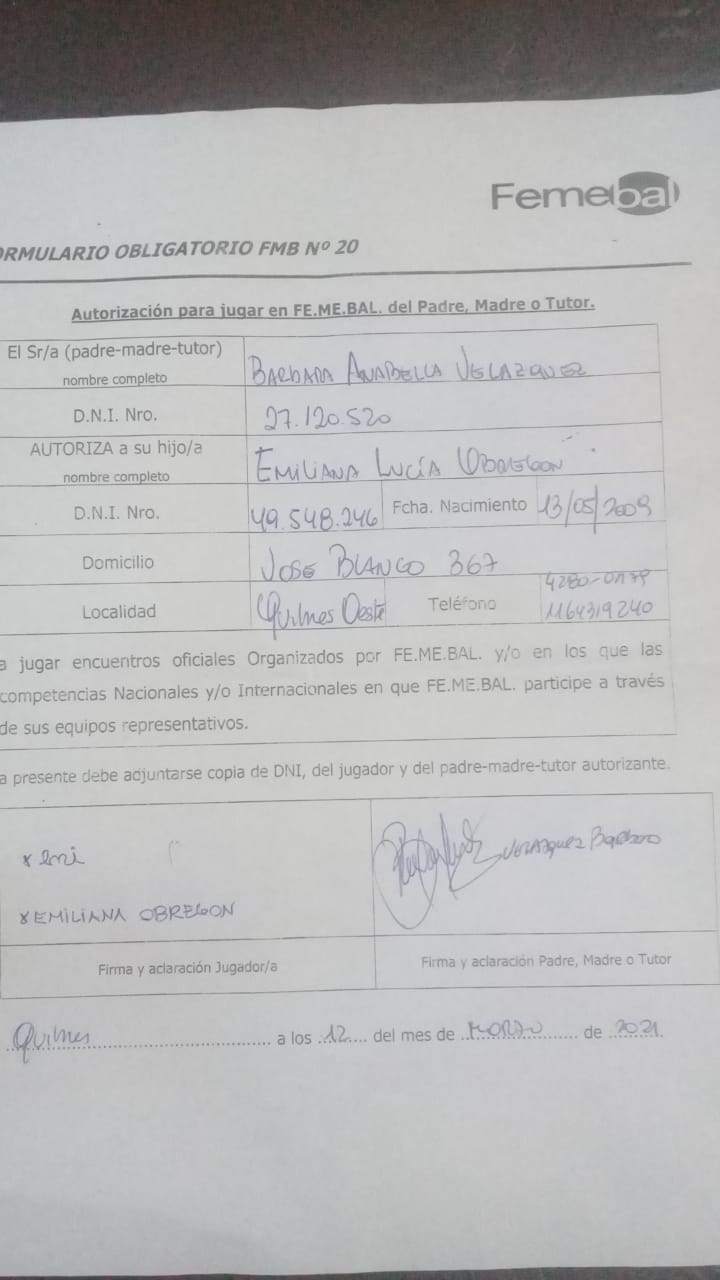 Femebal
ORMULARIO OBLIGATORIO FMB Nº 20
Autorización para jugar en FE.ME.BAL. del Padre, Madre o Tutor.
El Sr/a (padre-madre-tutor)
nombre completo
BARBARA ANABELLA VELAZQUEZ
D.N.I. Nro.
27.120.520
AUTORIZA a su hijo/a
nombre completo
EMILIANA LUCÍA OBREGON
D.N.I. Nro.
49.548.246
Fcha. Nacimiento
13/05/2009
Domicilio
JOSE BLANCO 367
Localidad
Quilmes Oeste
Teléfono
1164319240
a jugar encuentros oficiales Organizados por FE.ME.BAL. y/o en los que las
competencias Nacionales y/o Internacionales en que FE.ME.BAL. participe a través
de sus equipos representativos.
a presente debe adjuntarse copia de DNI, del jugador y del padre-madre-tutor autorizante.
x emi
x EMILIANA OBREGON
Velazquez Barbara
Firma y aclaración Jugador/a
Firma y aclaración Padre, Madre o Tutor
Quilmes a los 12 del mes de MARZO de 2021.